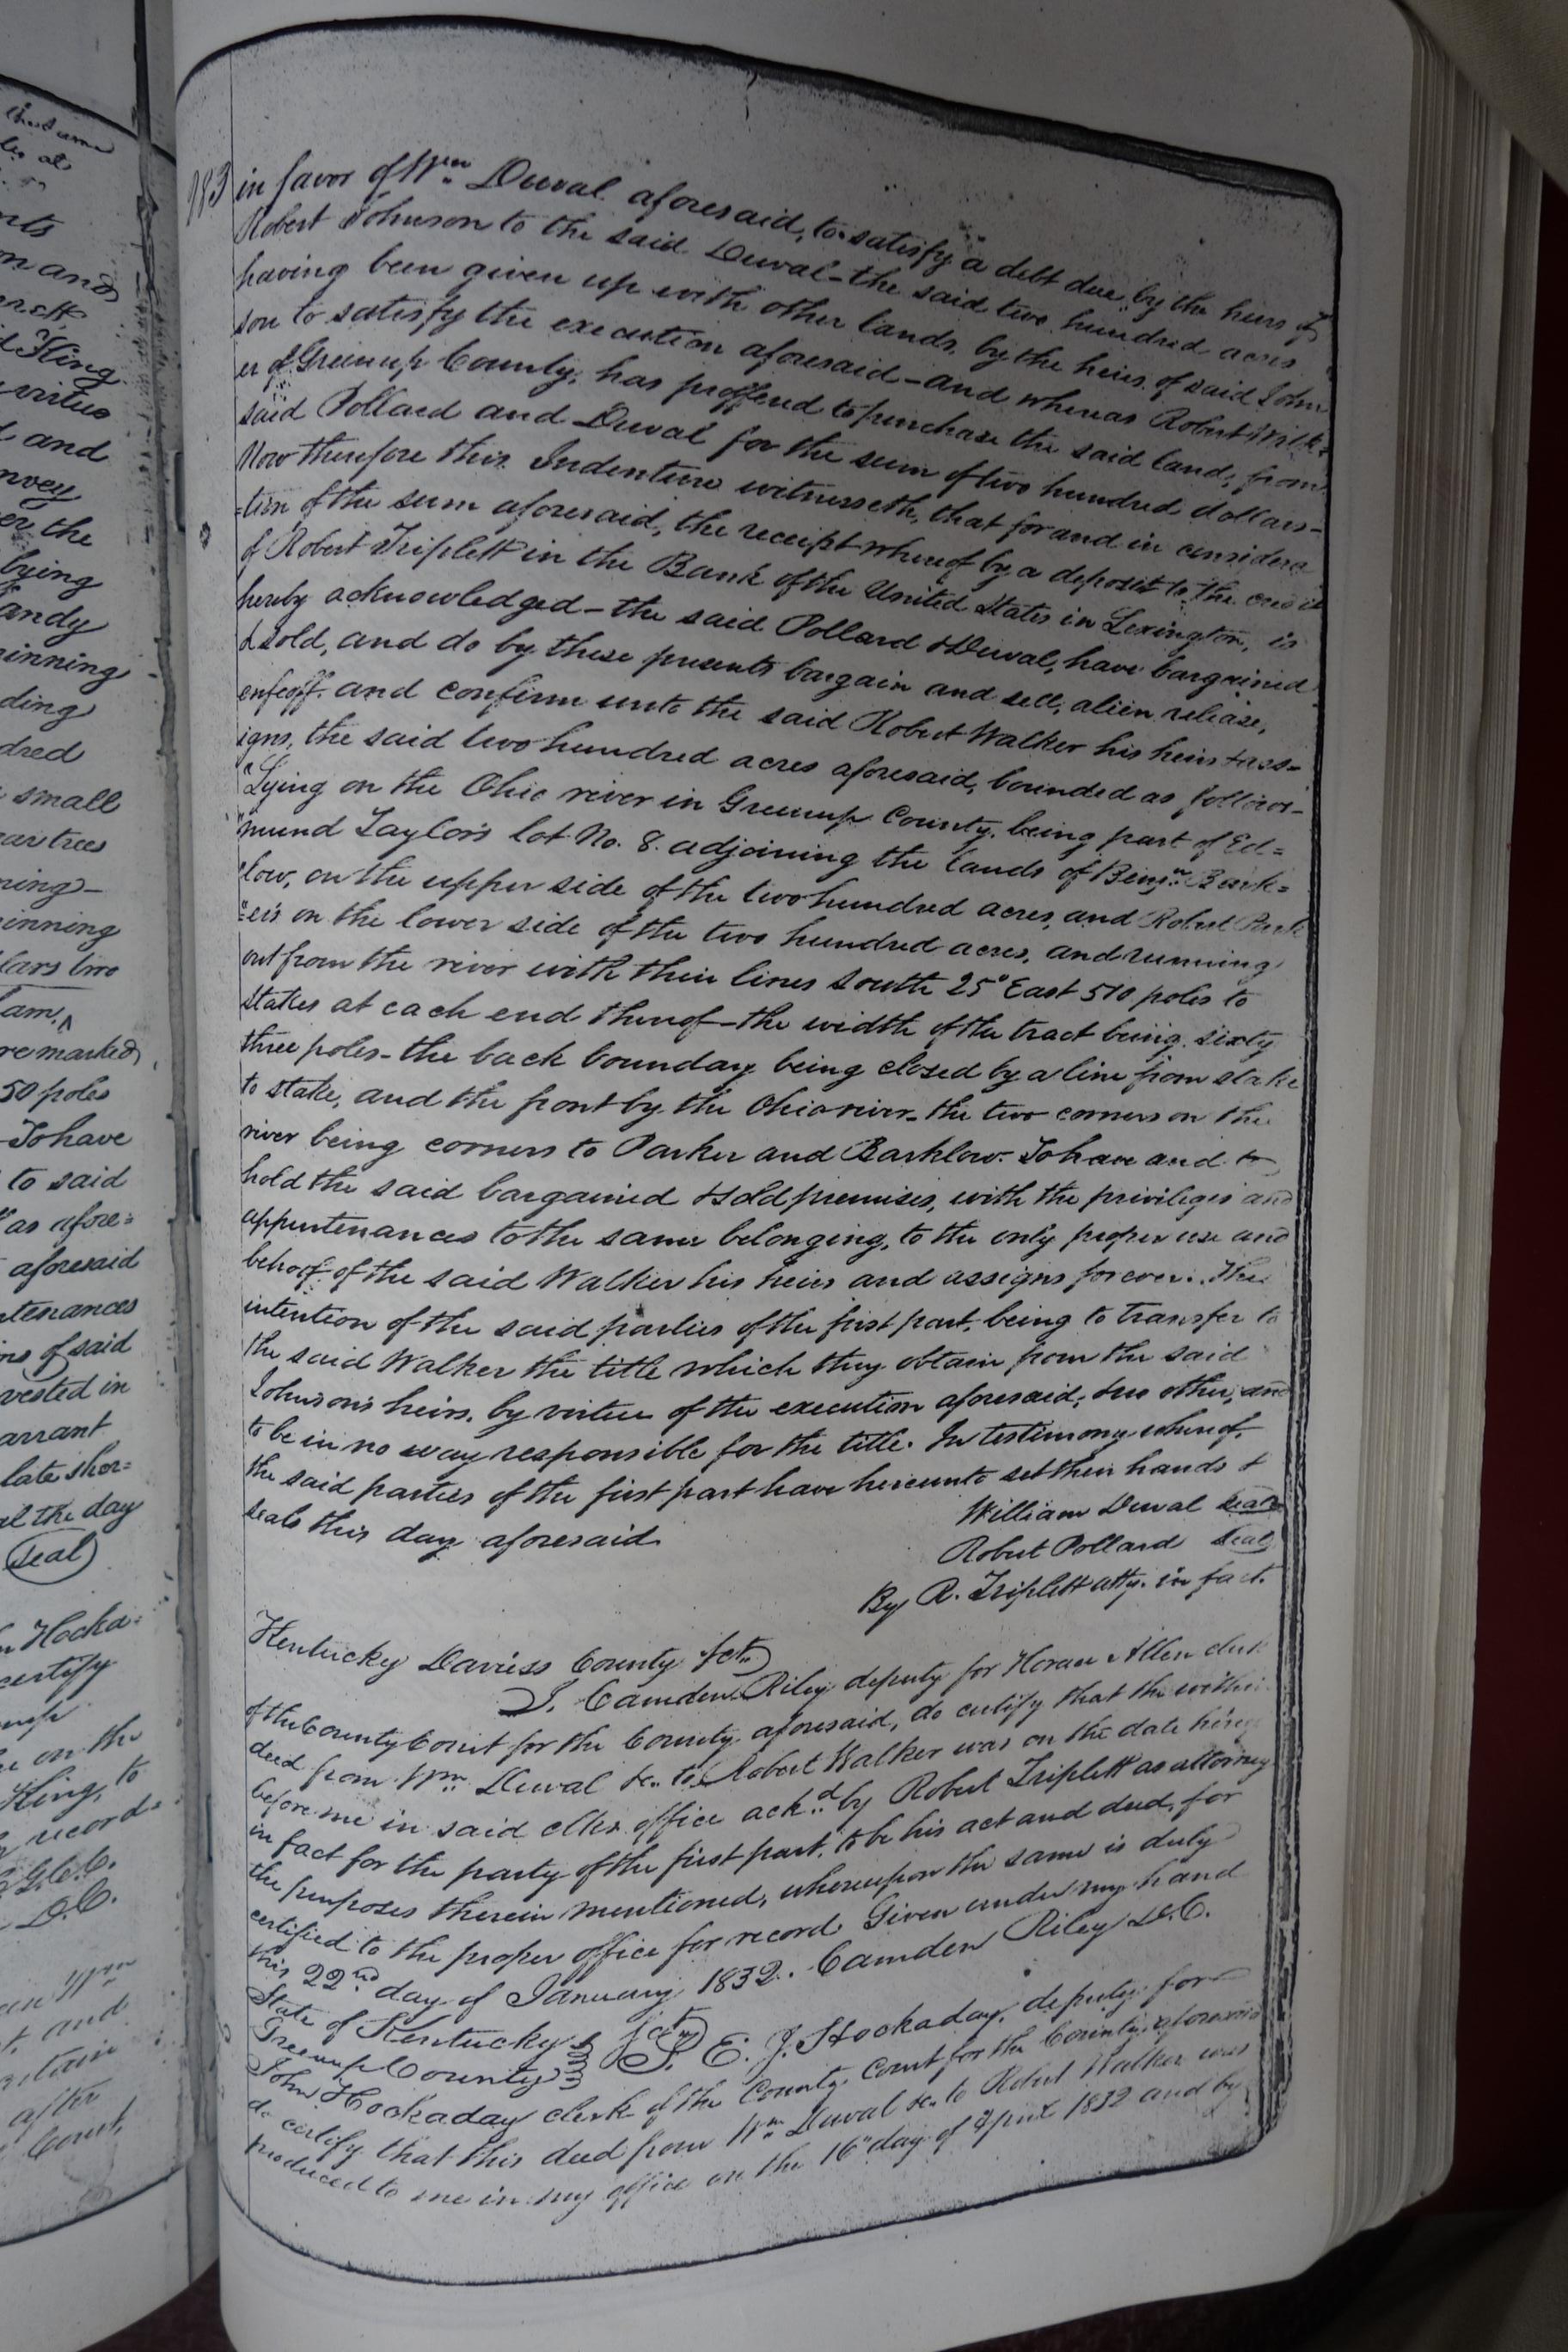 the same
les at
nts
n and
erett
d King
virtue
d and
nvey
er the
lying
andy
inning
ding
dred
small
ar trees
ning-
inning
lars two
lam,
re marked
50 poles
To have
to said
as afore=
aforesaid
rtenances
of said
vested in
arrant
late sher=
al the day
Seal
n Hocka=
certify
on the
King, to
record
G.C.C.
D.C.
Wm
and
after
Court,
183
in favor of Wm Duval aforesaid, to satisfy a debt due by the heirs of
Robert Johnson to the said Duval - the said two hundred acres
having been given up with other lands, by the heirs of said John
son to satisfy the execution aforesaid - and whereas Robert Walk=
er of Greenup County, has proffered to purchase the said land, from
said Pollard and Duval for the sum of two hundred dollars -
Now therefore this Indenture witnesseth, that for and in considera
=tion of the sum aforesaid, the receipt whereof by a deposit to the credit
of Robert Triplett in the Bank of the United States in Lexington, is
hereby acknowledged - the said Pollard & Duval, have bargained
& sold, and do by these presents bargain and sell, alien release,
enfeoff. and confirm unto the said Robert Walker his heirs & ass=
igns, the said two hundred acres aforesaid, bounded as follows -
"Lying on the Ohio river in Greenup County, being part of Ed=
"mund Taylor's lot No. 8. adjoining the lands of Benjn. Bark=
low, on the upper side of the two hundred acres, and Robert Park
"er's on the lower side of the two hundred acres, and running
out from the river with their lines South 25° East 510 poles to
stakes at each end thereof - the width of the tract being sixty
three poles - the back boundary being closed by a line from stake
to stake, and the front by the Ohio river - the two corners on the
river being corners to Parker and Barklow. To have and to
hold the said bargained & sold premises, with the privileges and
appurtenances to the same belonging, to the only proper use and
behoof of the said Walker his heirs and assigns forever. The
intention of the said parties of the first part, being to transfer to
the said Walker the title which they obtain from the said
Johnson's heirs, by virtue of the execution aforesaid, & no other, and
to be in no way responsible for the title. In testimony whereof.
the said parties of the first part have hereunto set their hands &
seals this day aforesaid.
William Duval Seal
Robert Pollard Seal
By R. Triplett atty. in fact.
Kentucky Daviess County Sct.
I. Camden Riley deputy for Horace Allen clerk
of the County Court for the County aforesaid, do certify that the within
deed from Wm Duval &c. to Robert Walker was on the date hereof
before me in said clks. office ackd. by Robert Triplett as attorney
in fact for the party of the first part, to be his act and deed, for
the purposes therein mentioned, whereupon the same is duly
certified to the proper office for record. Given under my hand
this 22nd day of January 1832. Camden Riley D.C.
State of Kentucky
Greenup County Sct. I. E. J. Hockaday, deputy for
John Hockaday clerk of the County Court for the County aforesaid
do certify that this deed from Wm Duval &c. to Robert Walker was
produced to me in my office on the 16" day of April 1832 and by